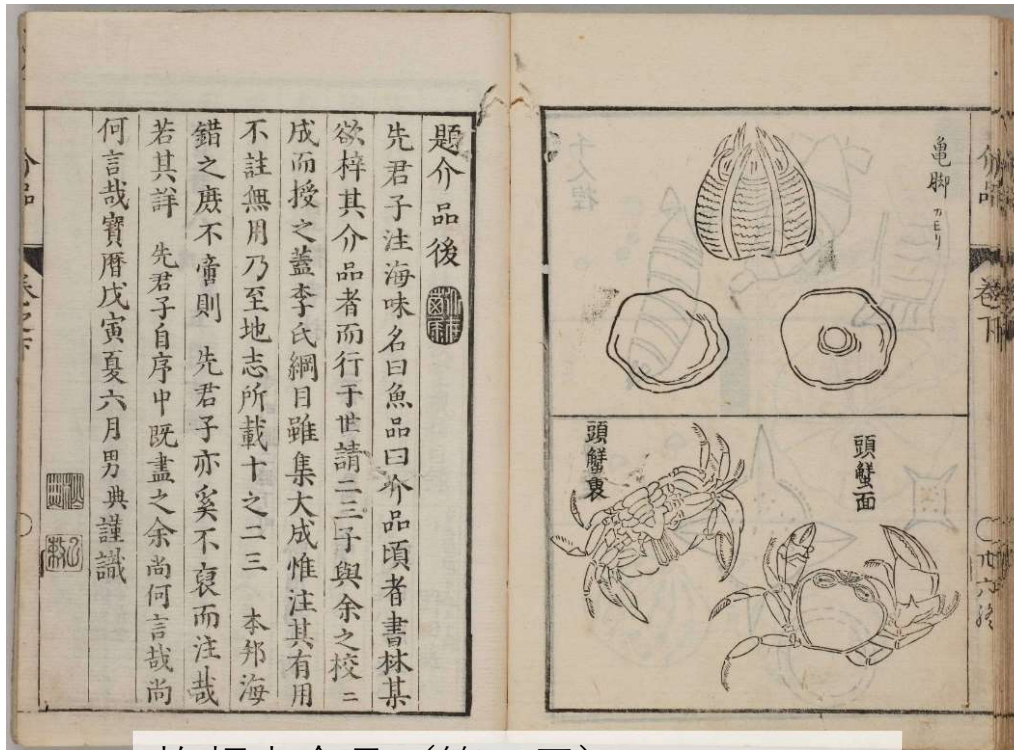 亀脚
頭蟹面
頭蟹裏
介品
巻下
題介品後
先君子注海味名曰魚品曰介品頃者書林某
欲梓其介品者而行于世請二三子與余之校二
成而授之蓋李氏綱目雖集大成惟注其有用
不註無用乃至地志所載十之二三　本邦海
錯之廐不啻則　先君子亦奚不裒而注哉
若其詳　先君子自序中既盡之余尚何言哉尚
何言哉寶暦戊寅夏六月男典謹識